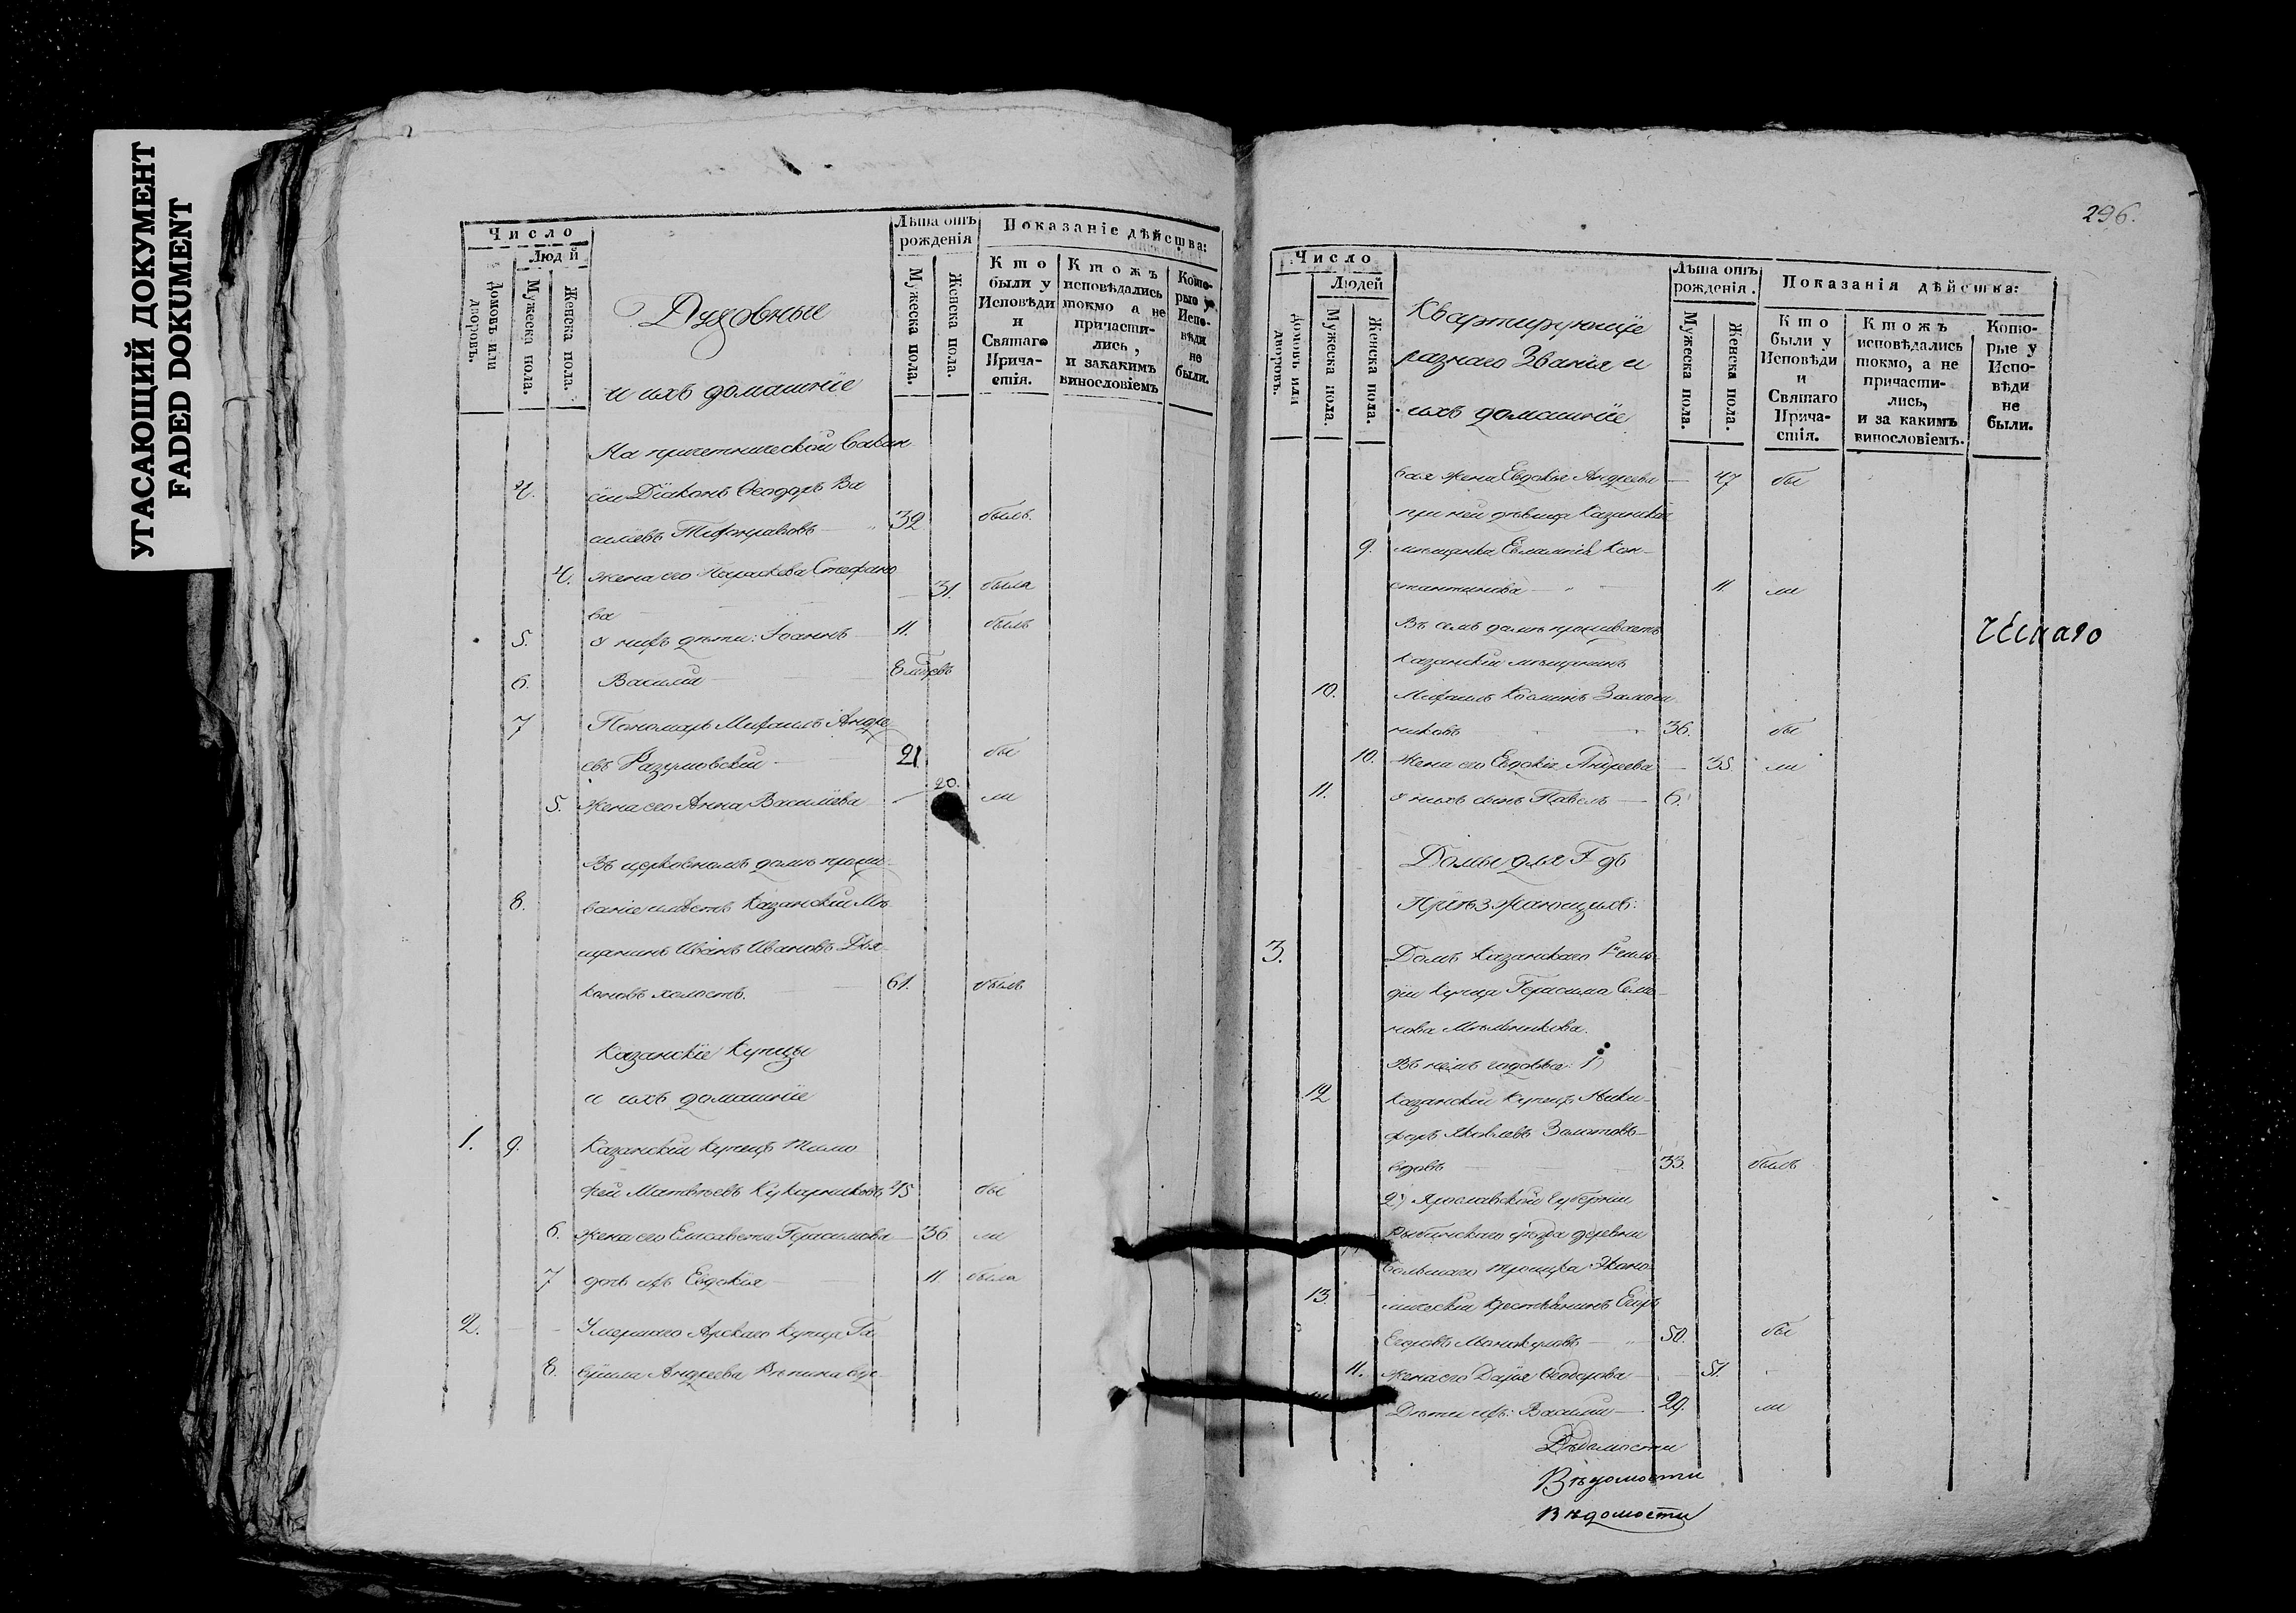 УГАСАЮЩИЙ ДОКУМЕНТ
FADED DOKUMENT
Число
Людей
Домовъ или дворовъ.
Мужеска пола.
Женска пола.
Духовные
и ихъ домашніе
Лѣта отъ рожденія
Мужеска пола.
Женска пола.
Показаніе дѣйства:
Кто были у Исповѣди и Святаго Прича-стія.
Ктожъ исповѣдались токмо а не причасти-лись, и закакимъ винословіемъ
Кото-рые у Испо-вѣди не были.
На причетнической вакан
4. сіи Діаконъ Ѳеодоръ Ва
силіевъ 32 былъ.
4. жена его Параскева Стефано
ва 31. была
5. У нихъ дѣти: Іоаннъ 11. былъ
6. Василій 8 мцовъ
7 Пономарь Михаилъ Андре
евъ Разумовскій 21 бы
5. Жена его Анна Васильева 20. ли
Въ церковномъ домѣ прожи
8. ваніе имѣетъ Казанскій Мѣ
щанинъ Иванъ Ивановъ Дья
коновъ холостъ. 61. былъ
Казанскіе Купцы
и ихъ домашніе
1. 9. Казанскій Купецъ Тимо
фей Матвѣевъ 45 бы
6. Жена его Елисавета Герасимова 36 ли
7 дочь ихъ Евдокія 11. была
2. Умершаго Арскаго Купца Га
8. вріила Андреева вдо
296.
Число
Людей
Домовъ или дворовъ.
Мужеска пола.
Женска пола.
Квартирующіе
разнаго Званія и
ихъ домашніе
Лѣта отъ рожденія.
Мужеска пола.
Женска пола.
Показанія дѣйства:
Кто были у Исповѣди и Святаго Прича-стія.
Ктожъ исповѣдались токмо, а не причасти-лись, и за какимъ винословіемъ.
Кото-рые у Испо-вѣди не были.
вая жена Евдокія Андреева 47 бы
при ней дѣвица Казанская
9. мѣщанка Евлампія Кон-
стантинова 11. ли
Въ семъ домѣ проживаетъ
Казанскій мѣщанинъ
10. Михаилъ Косминъ
никовъ 36. бы
10. Жена его Евдокія Андреева 35 ли
11. У нихъ сынъ Павелъ 6.
Домы для Г дъ
Пріѣзжающихъ:
3. Домъ Казанскаго 1й гиль-
діи Купца Герасима Семе-
нова Мѣльникова.
Въ немъ 1)
12 Казанскій Купецъ Ники-
форъ Яковлевъ Золотовъ
вдовъ 33. былъ
2) Ярославской Губерніи
Рыбинскаго уѣзда деревни
Большаго Эконо
13. мическій Крестьянинъ Егоръ
Егоровъ 50. бы
11. Жена его Дарья Ѳеодорова 51.
Дѣти ихъ: Василій 29. ли
Вѣдомости
Вѣдомости
Вѣдомости